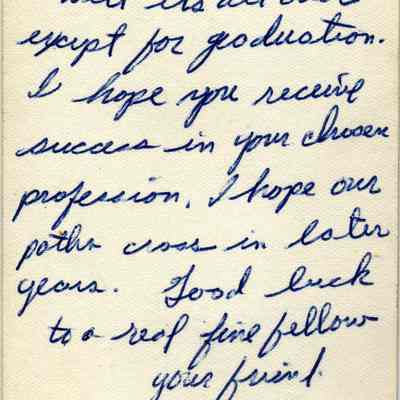 Well its all over
except for graduation.
I hope you receive
success in your chosen
profession. I hope our
paths cross in later
years. Good luck
to a real fine fellow
your friend.